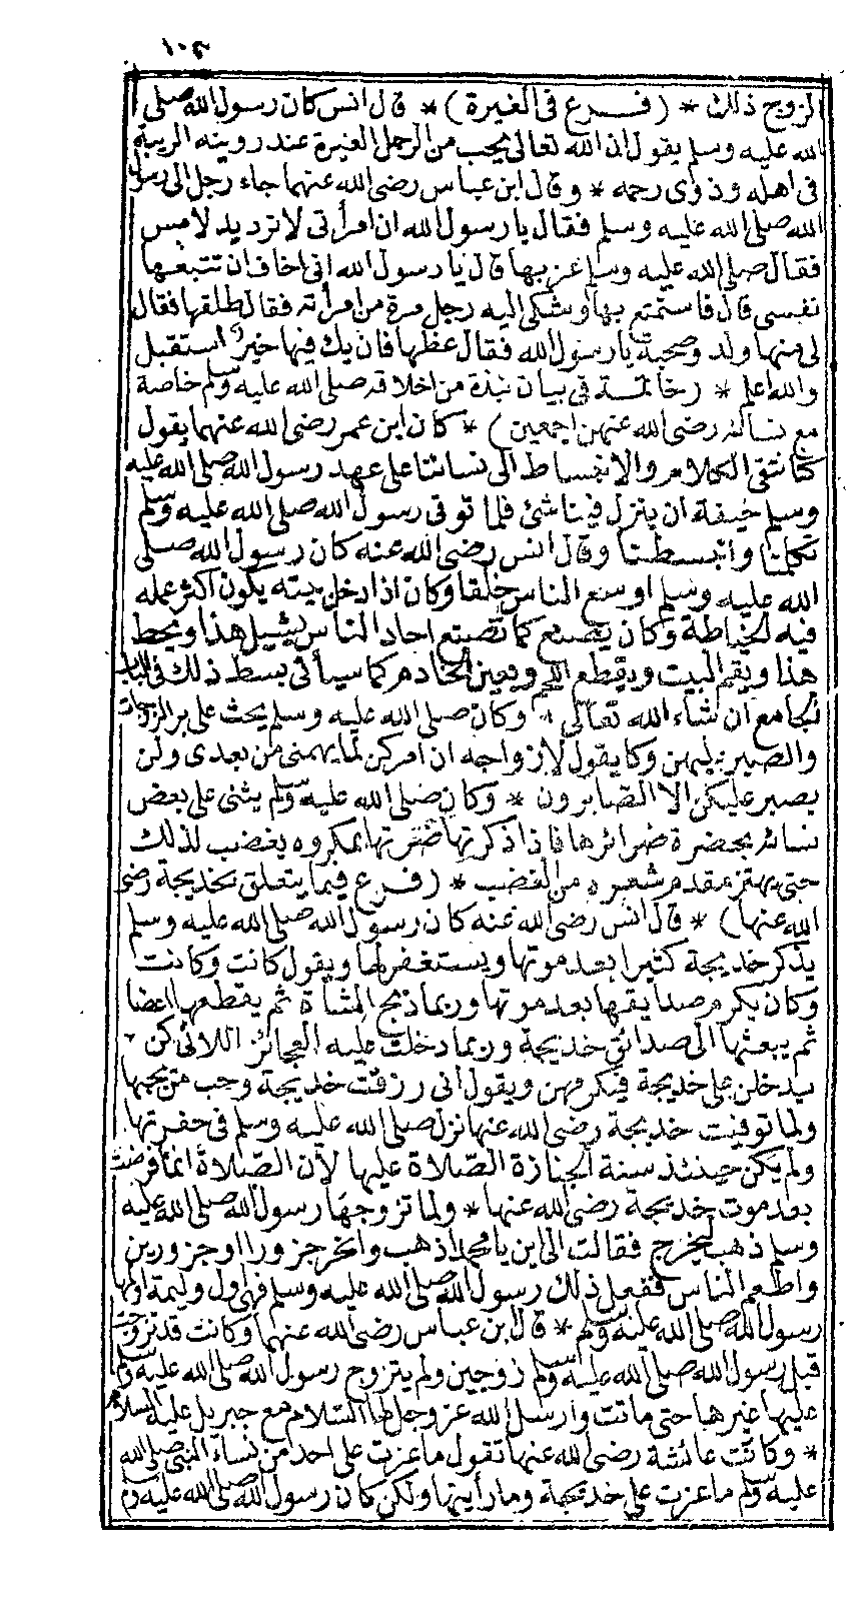 ١٠٣
الزوج ذلك * (فرع فى الغيرة) * قال انس كان رسول الله صلى
الله عليه وسلم يقول ان الله تعالى يحب من الرجل الغيرة عند رويته الريبة
فى اهله وذوى رحمه * وقال ابن عباس رضى الله عنهما جاء رجل الى رسول
الله صلى الله عليه وسلم فقال يا رسول الله ان امرأتى لا ترد يد لامس
فقال صلى الله عليه وسلم غربها قال يا رسول الله انى اخاف ان تتبعها
نفسى قال فاستمتع بها وشكى اليه رجل مرة من امرأته فقال طلقها فقال
لى منها ولد وصحبة يا رسول الله فقال عظها فان يك فيها خير استقبل
والله اعلم * (خاتمة فى بيان نبذة من اخلاقه صلى الله عليه وسلم خاصة
مع نسائه رضى الله عنهن اجمعين) * كان ابن عمر رضى الله عنهما يقول
كنا نتقى الكلام والانبساط الى نسائنا على عهد رسول الله صلى الله عليه
وسلم خيفة ان ينزل فينا شئ فلما توفى رسول الله صلى الله عليه وسلم
تكلمنا وانبسطنا وقال انس رضى الله عنه كان رسول الله صلى
الله عليه وسلم اوسع الناس خلقا وكان اذا دخل بيته يكون اكثر عمله
فيه الخياطة وكان يصنع كما تصنع احاد الناس يشيل هذا ويحط
هذا ويقم البيت ويقطع اللحم ويعين الخادم كما سيأتى بسط ذلك فى الباب
الجامع ان شاء الله تعالى * وكان صلى الله عليه وسلم يحث على بر الزوجات
والصبر عليهن وكا يقول لازواجه ان امركن لما يهمنى من بعدى ولن
يصبر عليكن الا الصابرون * وكان صلى الله عليه وسلم يثنى على بعض
نسائه بحضرة ضرائرها فاذا ذكرتها ضرتها بمكروه يغضب لذلك
حتى يهتز مقدم شعره من الغضب * (فرع فيما يتعلق بخديجة رضى
الله عنها) * قال انس رضى الله عنه كان رسول الله صلى الله عليه وسلم
يذكر خديجة كثيرا بعد موتها ويستغفر لها ويقول كانت وكانت
وكان يكرم صدايقها بعد موتها وربما ذبح الشاة ثم يقطعها اعضا
ثم يبعثها الى صدائق خديجة وربما دخلت عليه العجائز اللائى كن
يدخلن على خديجة فيكرمهن ويقول انى رزقت خديجة وحب من يحبها
ولما توفيت خديجة رضى الله عنها نزل صلى الله عليه وسلم فى حفرتها
ولم يكن حينئذ سنة الجنازة الصلاة عليها لأن الصلاة انما فرضت
بعد موت خديجة رضى الله عنها * ولما تزوجها رسول الله صلى الله عليه
وسلم ذهب ليخرج فقالت الى اين يا محمد اذهب وانحر جزورا او جزورين
واطعم الناس ففعل ذلك رسول الله صلى الله عليه وسلم فهى اول وليمة اولمها
رسول الله صلى الله عليه وسلم * قال ابن عباس رضى الله عنهما وكانت قد تزوجت
قبل رسول الله صلى الله عليه وسلم زوجين ولم يتزوج رسول الله صلى الله عليه وسلم
عليها غيرها حتى ماتت وارسل الله عز وجل لها السلام مع جبريل عليه السلام
* وكانت عائشة رضى الله عنها تقول ما غرت على احد من نساء النبى صلى الله
عليه وسلم ما غرت على خديجة وما رأيتها ولكن كان رسول الله صلى الله عليه وسلم